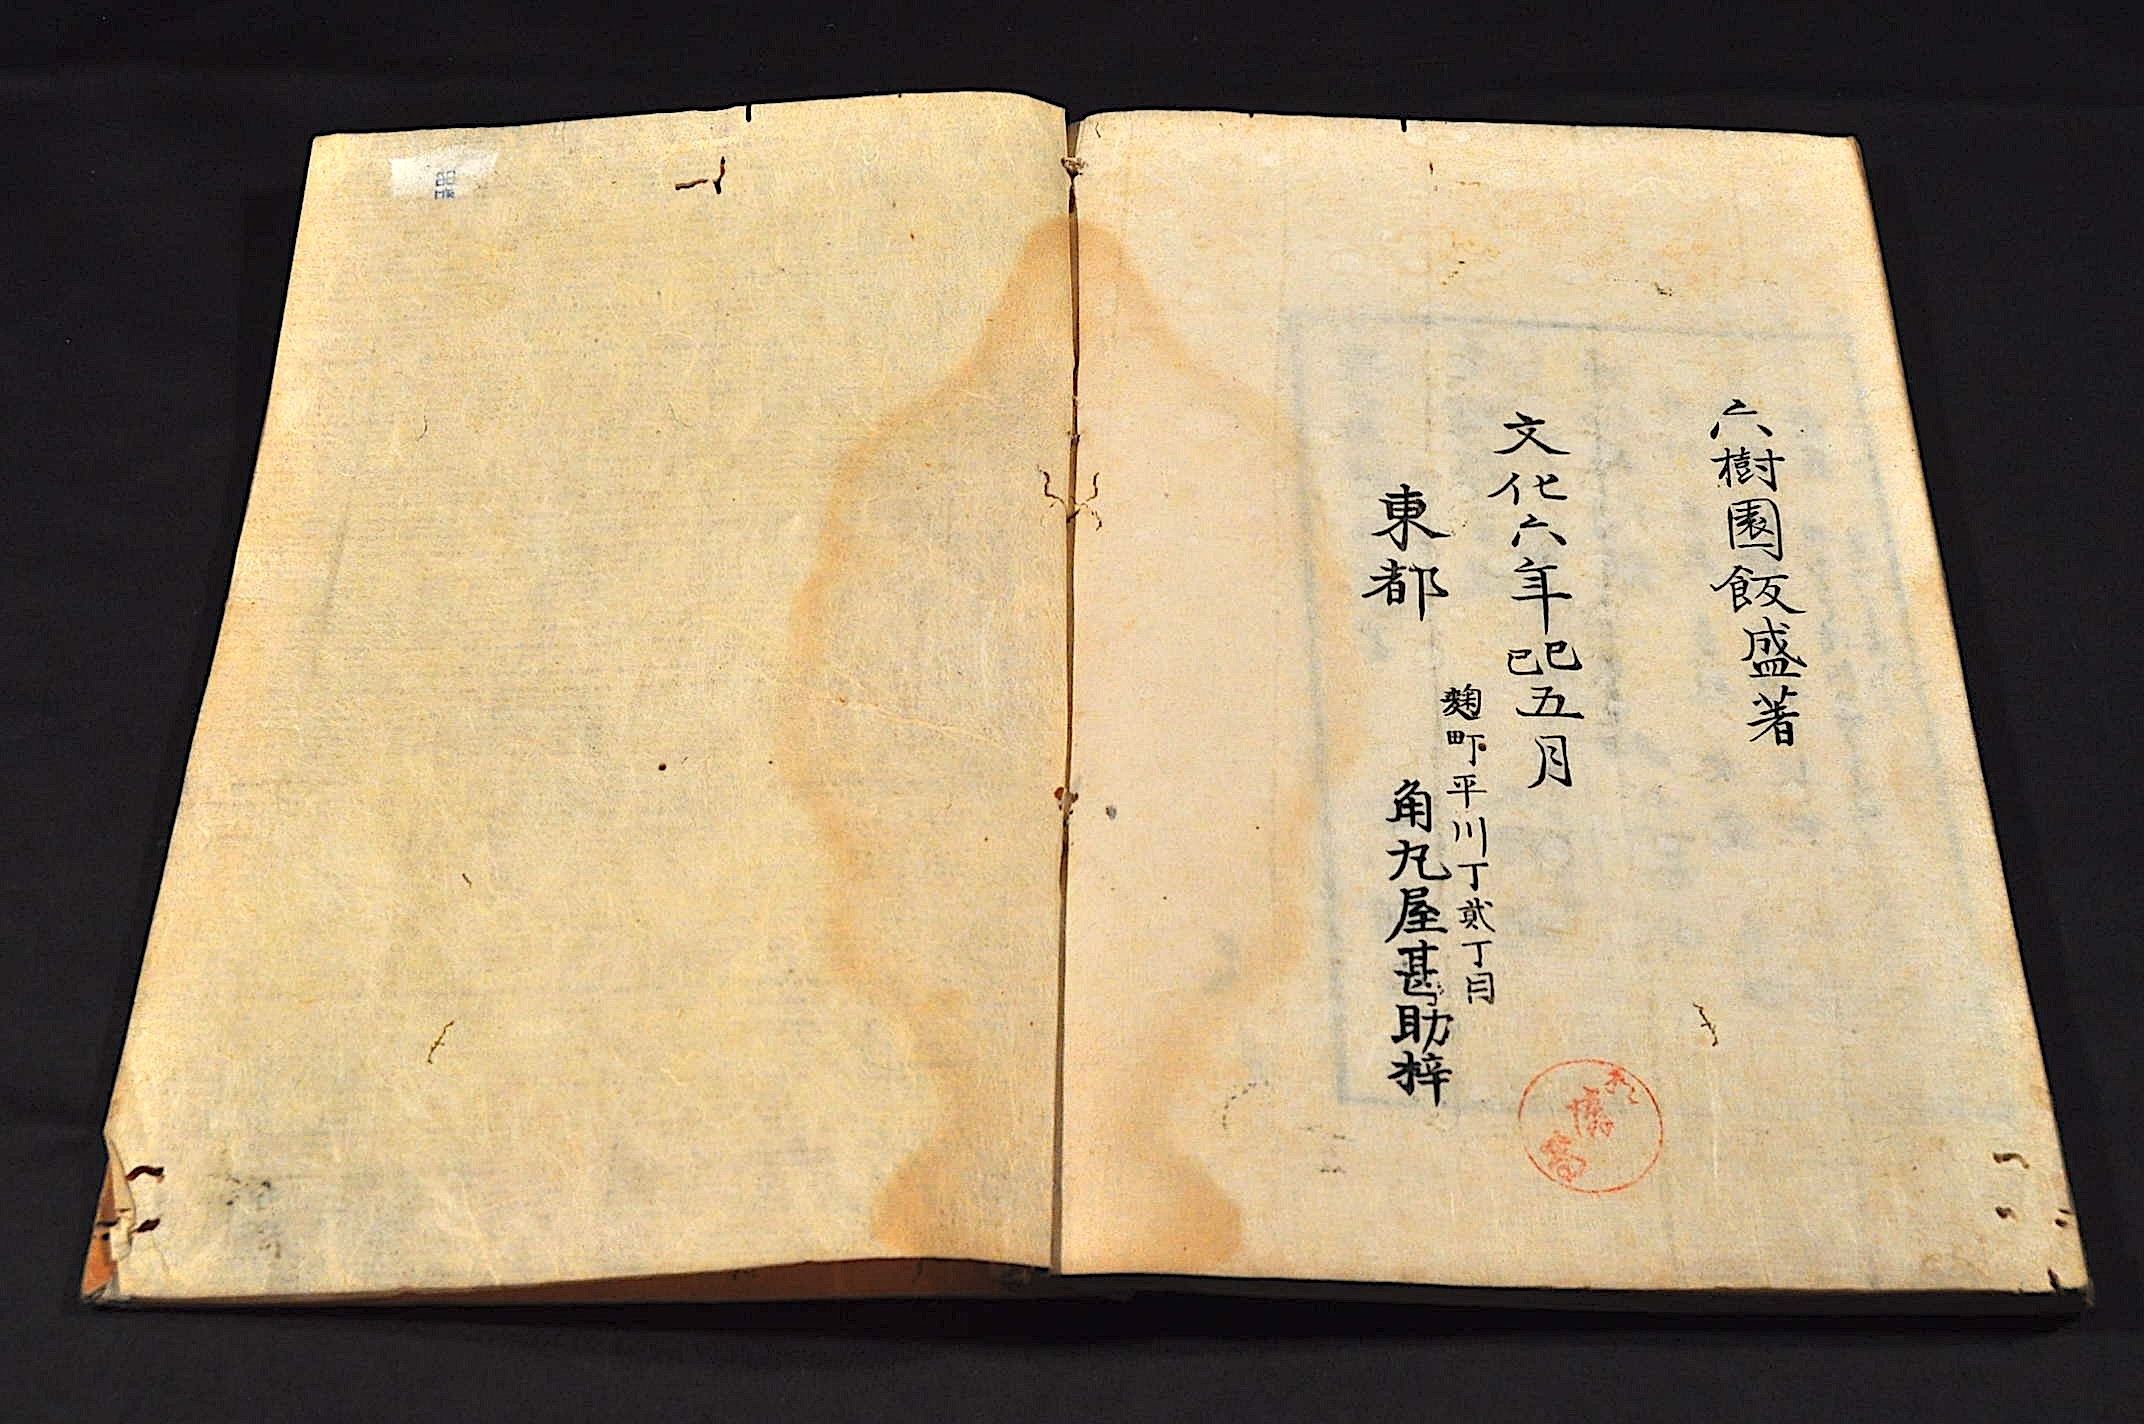 六樹園飯盛著
文化六年己巳五月
東都
麹町平川丁貳丁目
角丸屋甚助梓